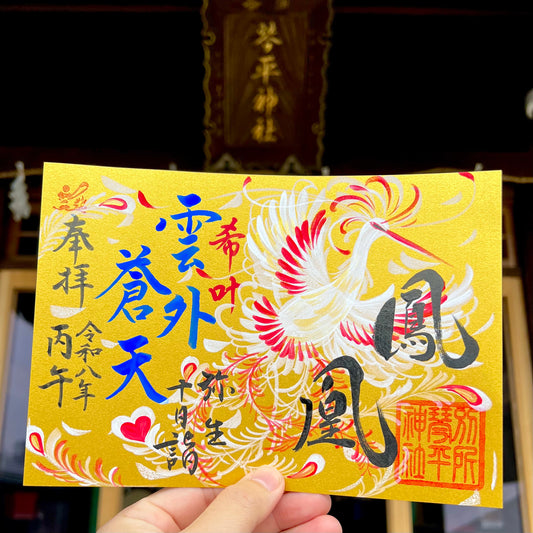 琴平神社
鳳凰
希叶
雲外
蒼天
弥生
十日詣
奉拝
令和八年
丙午
別所
琴平
神社